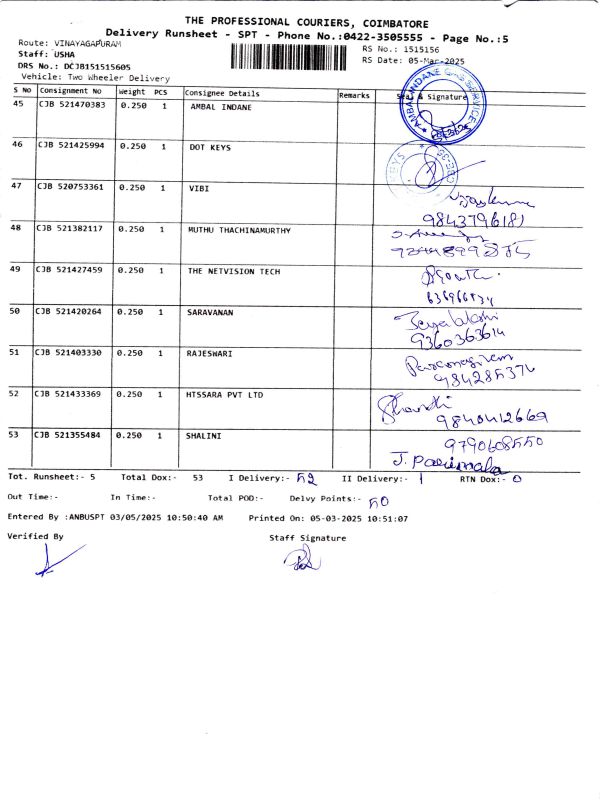 THE PROFESSIONAL COURIERS, COIMBATORE
Delivery Runsheet - SPT - Phone No.:0422-3505555 - Page No.:5
Route: VINAYAGAPURAM
RS No.: 1515156
Staff: USHA
RS Date: 05-Mar-2025
DRS No.: DCJB151515605
Vehicle: Two Wheeler Delivery
S No Consignment No Weight PCS Consignee Details Remarks & Signature
45 CJB 521470383 0.250 1 AMBAL INDANE
46 CJB 521425994 0.250 1 DOT KEYS
47 CJB 520753361 0.250 1 VIBI
9843796181
48 CJB 521382117 0.250 1 MUTHU THACHINAMURTHY
49 CJB 521427459 0.250 1 THE NETVISION TECH
50 CJB 521420264 0.250 1 SARAVANAN
9360363614
51 CJB 521403330 0.250 1 RAJESWARI
52 CJB 521433369 0.250 1 HTSSARA PVT LTD
9840412669
53 CJB 521355484 0.250 1 SHALINI
9790608550
J. Parimala
Tot. Runsheet:- 5 Total Dox:- 53 I Delivery:- 52 II Delivery:- 1 RTN Dox:- 0
Out Time:- In Time:- Total POD:- Delvy Points:- 50
Entered By :ANBUSPT 03/05/2025 10:50:40 AM Printed On: 05-03-2025 10:51:07
Verified By Staff Signature